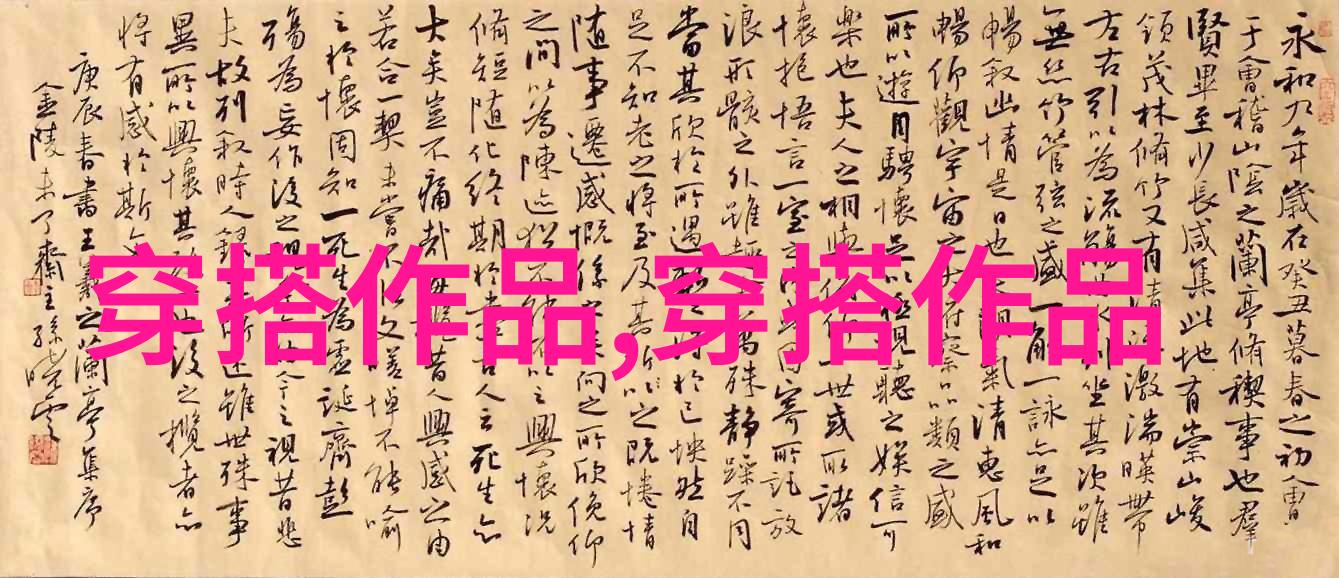 永和九年歲在癸丑暮春之初會
于會稽山陰之蘭亭脩禊事也羣
賢畢至少長咸集此地有崇山峻
領茂林脩竹又有清流激湍暎帶
左右引以為流觴曲水列坐其次雖
無絲竹管弦之盛一觴一詠亦足以
暢叙幽情是日也天朗氣清惠風和
暢仰觀宇宙之大俯察品類之盛
所以遊目騁懷足以極視聽之娛信可
樂也夫人之相與俯仰一世或取諸
懷抱悟言一室之內或因寄所託放
浪形骸之外雖趣舍萬殊靜躁不同
當其欣於所遇暫得於己怏然自
足不知老之將至及其所之既惓情
隨事遷感慨係之矣向之所欣俛仰
之間以為陳迹猶不能不以之興懷況
脩短隨化終期於盡古人云死生亦
大矣豈不痛哉每覽昔人興感之由
若合一契未嘗不臨文嗟悼不能喻
之於懷固知一死生為虛誕齊彭
殤為妄作後之視今亦由今之視昔悲
夫故列叙時人錄其所述雖世殊事
異所以興懷其致一也後之攬者亦
將有感於斯文
庚辰春書王羲之蘭亭集序
金陵未了齋主孫曉雲
穿搭作品,穿搭作品